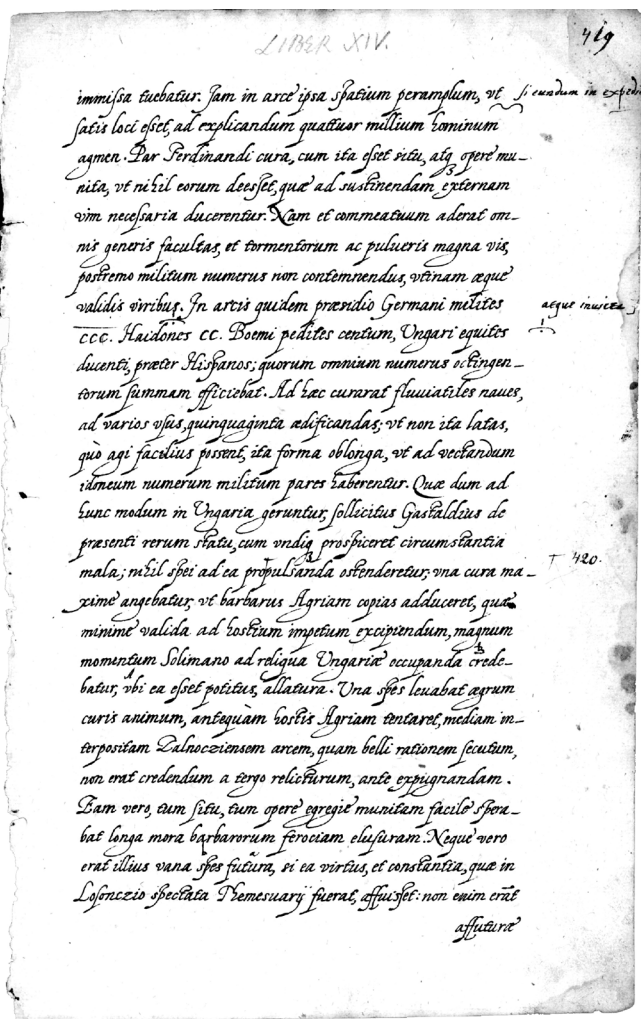 LIBER XIV.
419
immissa tuebatur. Jam in arce ipsa spatium peramplum, vt
si eundum in expedi
satis loci esset, ad explicandum quattuor millium hominum
agmen. Par Ferdinandi cura, cum ita esset situ, atq opere mu-
nita, vt nihil eorum deesset, quæ ad sustinendam externam
vim necessaria ducerentur. Nam et commeatuum aderat om-
nis generis facultas, et tormentorum ac pulueris magna vis,
postremo militum numerus non contemnendus, vtinam æque
validis viribus. In arcis quidem præsidio Germani milites
aeque inuicta
CCC. Haidones CC. Boemi pedites centum, Ungari equites
ducenti, præter Hispanos; quorum omnium numerus octingen-
torum summam efficiebat. Ad hæc curarat fluuiatiles naues,
ad varios vsus, quinquaginta ædificandas; vt non ita latas,
quò agi facilius possent, ita forma oblonga, vt ad vectandum
idoneum numerum militum pares haberentur. Quæ dum ad
hunc modum in Ungaria geruntur, sollicitus Gastaldius de
præsenti rerum statu, cum vndiq prospiceret circumstantia
420.
mala; nihil spei ad ea propulsanda ostenderetur; vna cura ma-
xime angebatur, vt barbarus Agriam copias adduceret, quæ
minime valida ad hostium impetum excipiendum, magnum
momentum Solimano ad reliqua Ungariæ occupanda crede-
batur, vbi ea esset potitus, allatura. Una spes leuabat ægrum
curis animum, antequàm hostis Agriam tentaret, mediam in-
terpositam Zalnocziensem arcem, quam belli rationem secutum,
non erat credendum a tergo relicturum, ante expugnandam.
Eam vero, tum situ, tum opere egregie munitam facile spera-
bat longa mora barbarorum ferociam elusuram. Neque vero
erat illius vana spes futura, si ea virtus, et constantia, quæ in
Losonczio spectata Themesuarij fuerat, affuisset: non enim erat
affuturæ